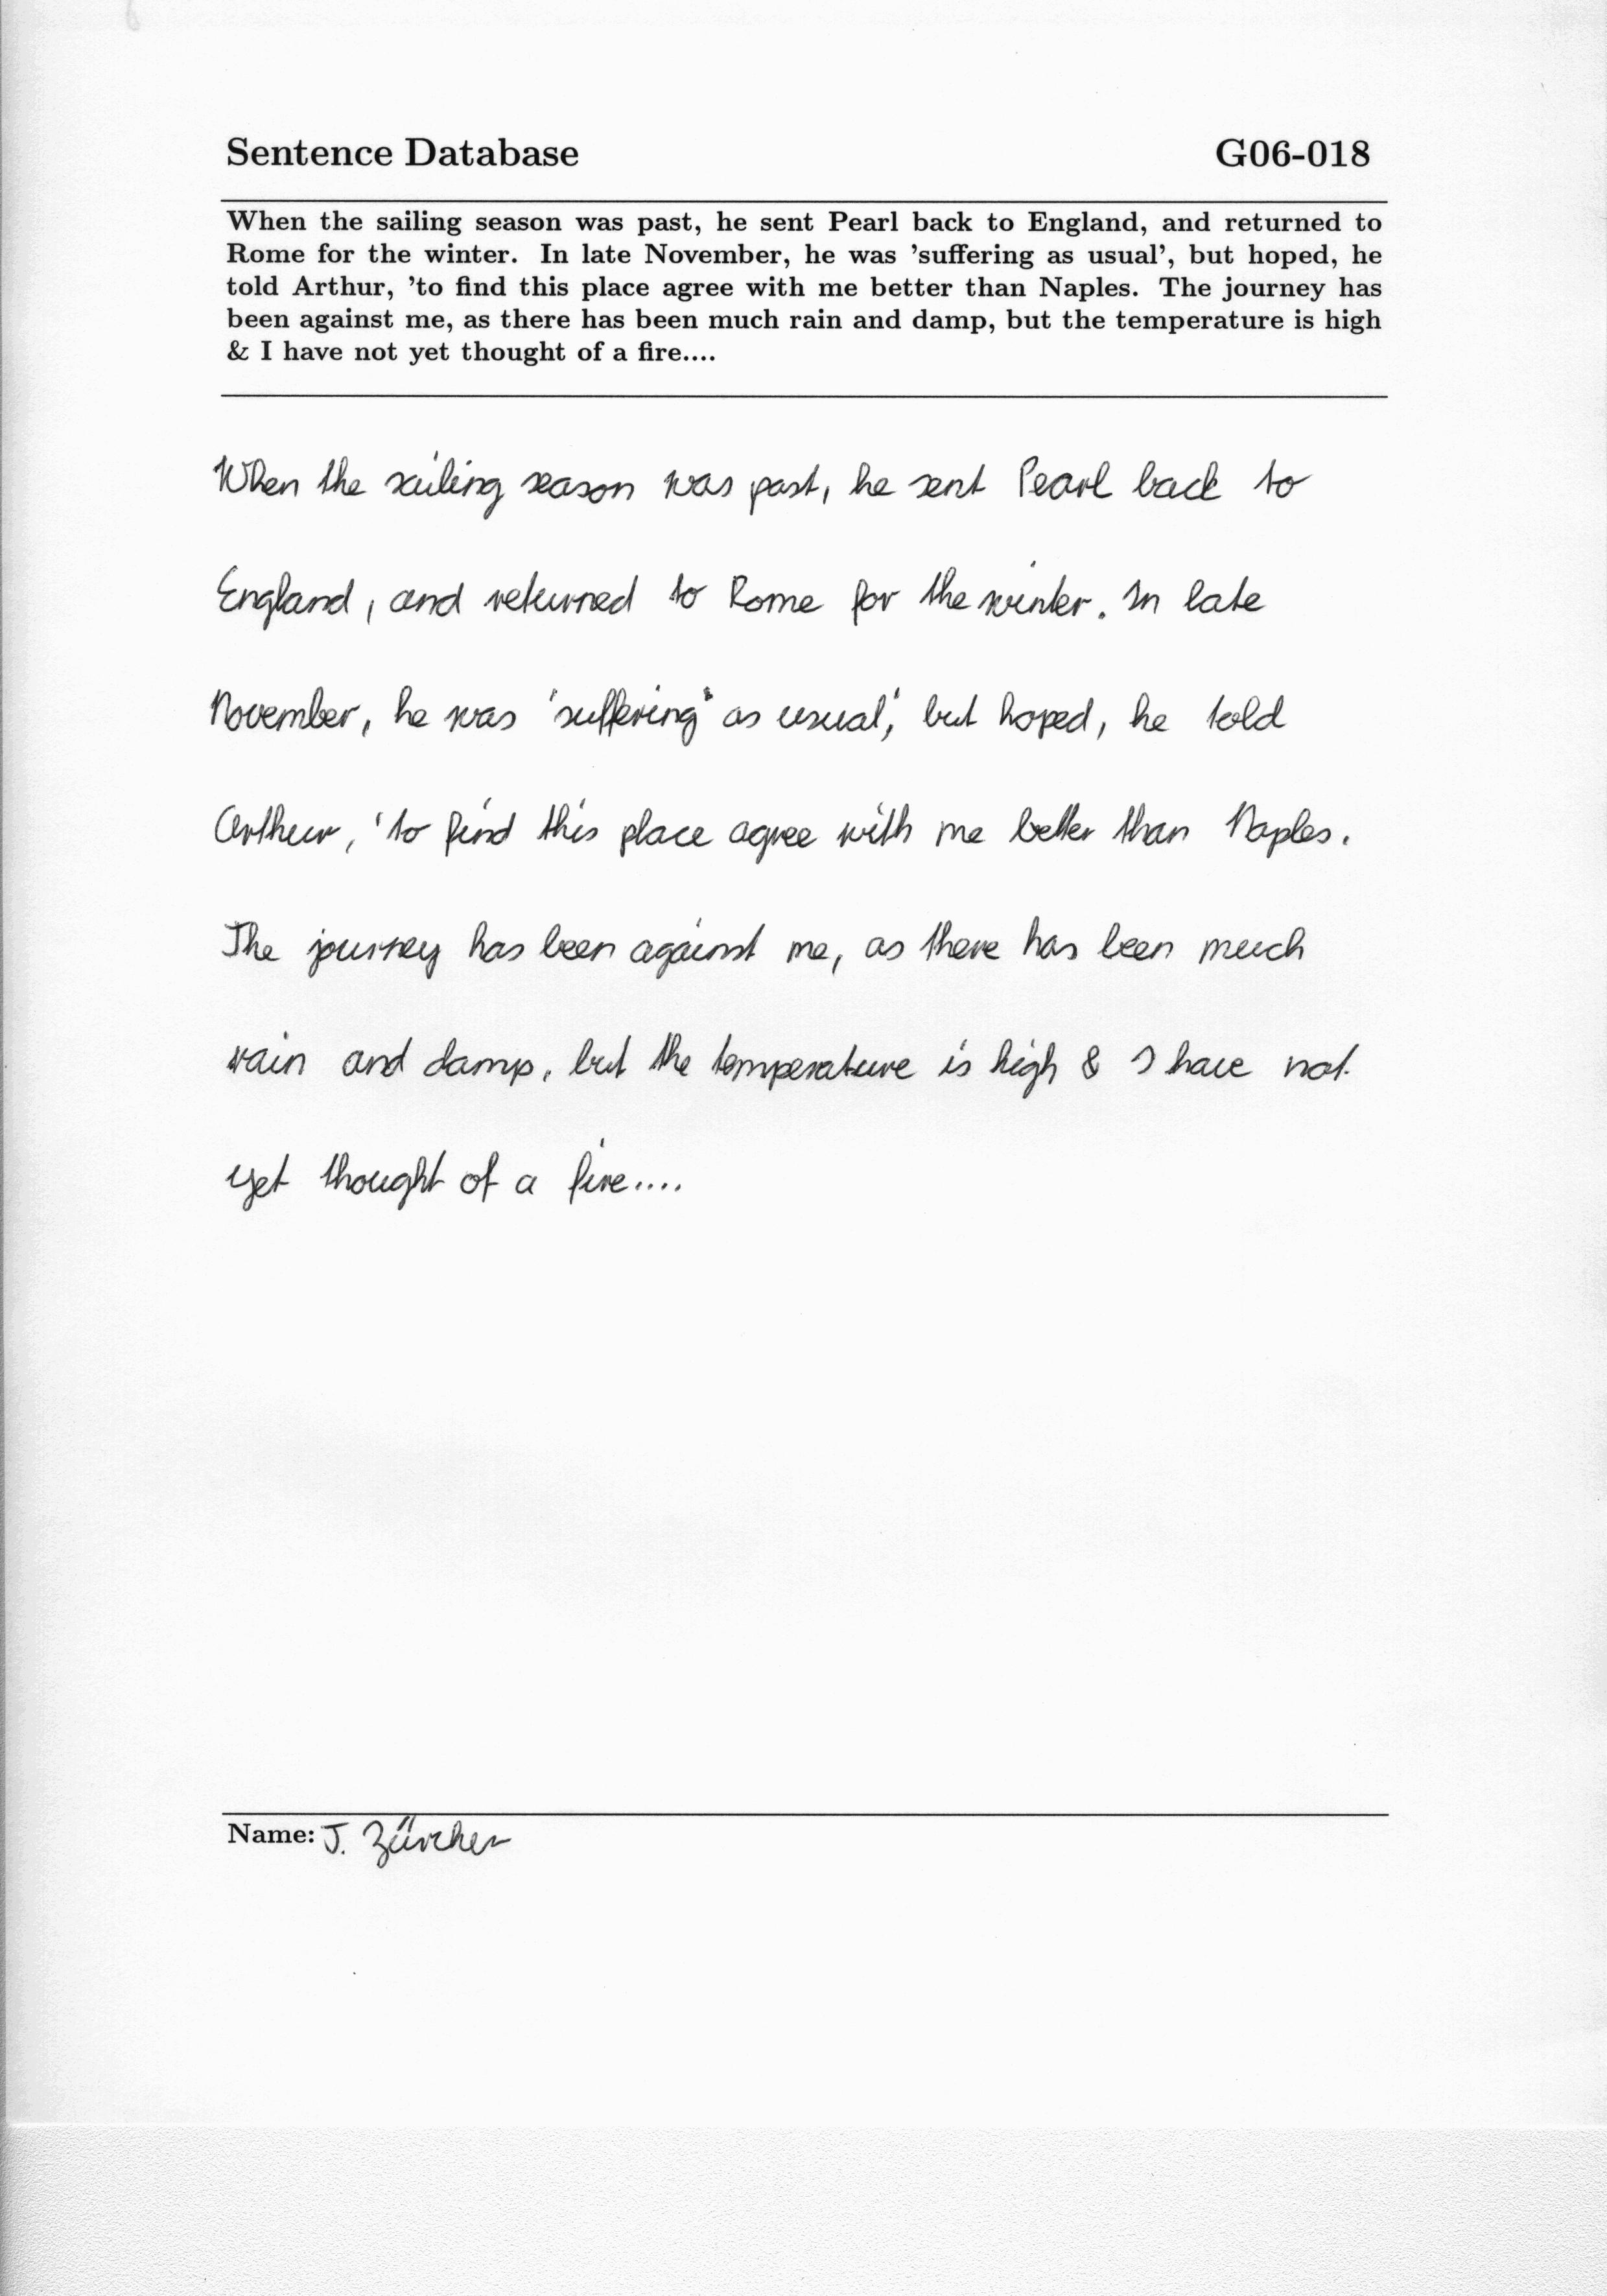 Sentence Database G06-018
When the sailing season was past, he sent Pearl back to England, and returned to
Rome for the winter. In late November, he was 'suffering as usual', but hoped, he
told Arthur, 'to find this place agree with me better than Naples. The journey has
been against me, as there has been much rain and damp, but the temperature is high
& I have not yet thought of a fire....
When the sailing season was past, he sent Pearl back to
England, and returned to Rome for the winter. In late
November, he was 'suffering' as usual', but hoped, he told
Arthur, 'to find this place agree with me better than Naples.
The journey has been against me, as there has been much
rain and damp, but the temperature is high & I have not
yet thought of a fire....
Name: J. Zürcher